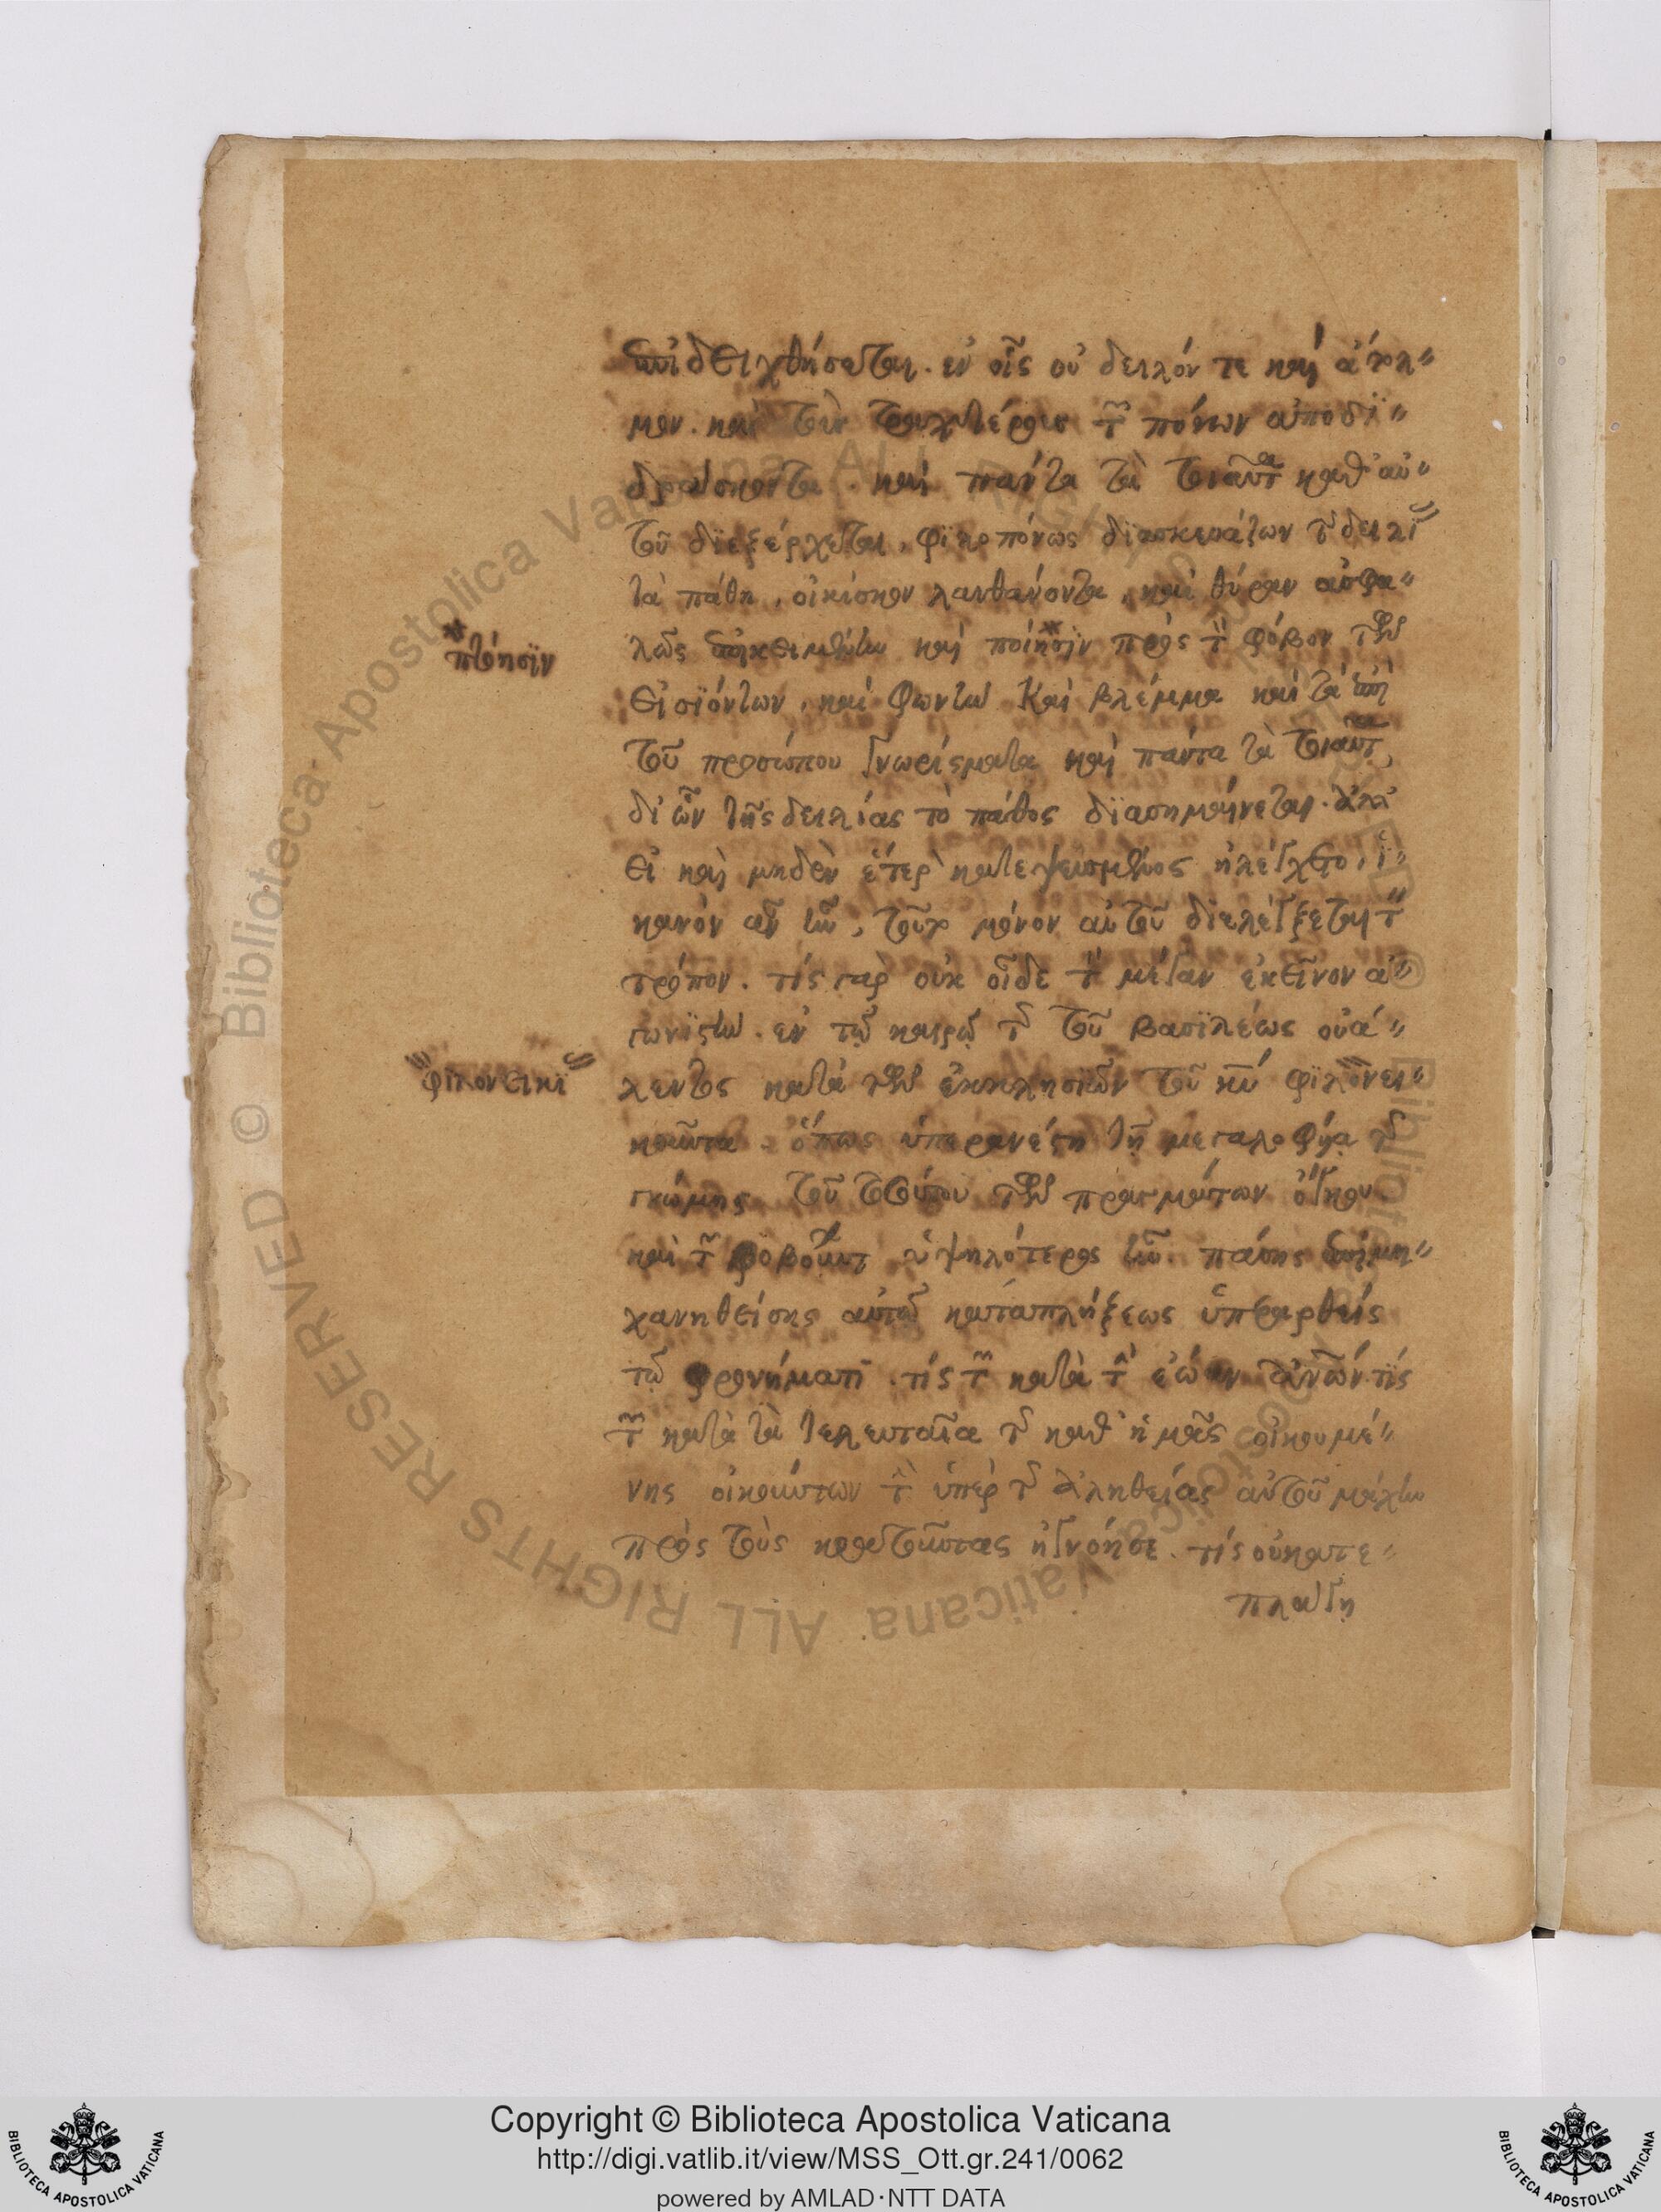 ἐπιδειχθήσεται. ἐν οἷς οὐ δειλόν τε καὶ ἄτολ"
μον. καὶ τὰς τραχυτέρους τῶν πόνων ἀποδϊ"
δράσκοντα. καὶ πάντα τὰ τοιαῦτα καθ' αὐ"
τοῦ διεξέρχεται, φιλοπόνως διασκευάζων τῆς δειλί"
τὰ πάθη, οἰκίσκον λανθάνοντα, καὶ θύραν ἀσφα"
λῶς ἐπικειμένην καὶ ποίησιν πρὸς τὸν φόβον τῶν
*πτόησϊν
εἰσϊόντων, καὶ φωνὴν καὶ βλέμμα καὶ τὰ ἐπὶ
τοῦ προσώπου γνωρίσματα καὶ πάντα τὰ τοιαῦτα,
δι' ὧν τῆς δειλίας τὸ πάθος διασημαίνεται. ἀλλ'
εἰ καὶ μηδὲν ἕτερον κατεψευσμένος ἠλέγχετο, ἱ"
κανὸν ἂν ἦν, τοῦτο μόνον αὐτοῦ διελέγξεται τὸν
τρόπον. τίς γὰρ οὐκ οἶδε τὸν μέγαν ἐκεῖνον ἀ"
γωνϊστὴν. ἐν τῷ καιρῷ τῆς τοῦ βασϊλέως οὐά"
λεντος κατὰ τῶν ἐκκλησϊῶν τοῦ θεοῦ φϊλονει"
"φϊλονεικϊ"
κοῦντα. ὅπως ὑπερανέστη τῇ μεγαλοφυΐᾳ τῆς
γνώμης τοῦ τοσούτου τῶν πραγμάτων ὄγκου.
καὶ τῶν φοβούντων ὑψηλότερος ἦν. πάσης ἐπιμη"
χανηθείσης αὐτῷ καταπλήξεως ὑπεραρθεὶς
τῷ φρονήματι. τίς τῶν κατὰ τὴν ἑῴαν ἁπάντων τίς
τῶν κατὰ τὰ τελευταῖα τῆς καθ' ἡμᾶς οἰκουμέ"
νης οἰκούντων τὴν ὑπὲρ τῆς ἀληθείας αὐτοῦ μάχην
πρὸς τοὺς κρατοῦντας ἠγνόησε. τίς οὐ κατε"
πλάγη
Copyright © Biblioteca Apostolica Vaticana
http://digi.vatlib.it/view/MSS_Ott.gr.241/0062
powered by AMLAD·NTT DATA
BIBLIOTECA APOSTOLICA VATICANA
BIBLIOTECA APOSTOLICA VATICANA
Biblioteca Apostolica Vaticana. ALL RIGHTS RESERVED ©